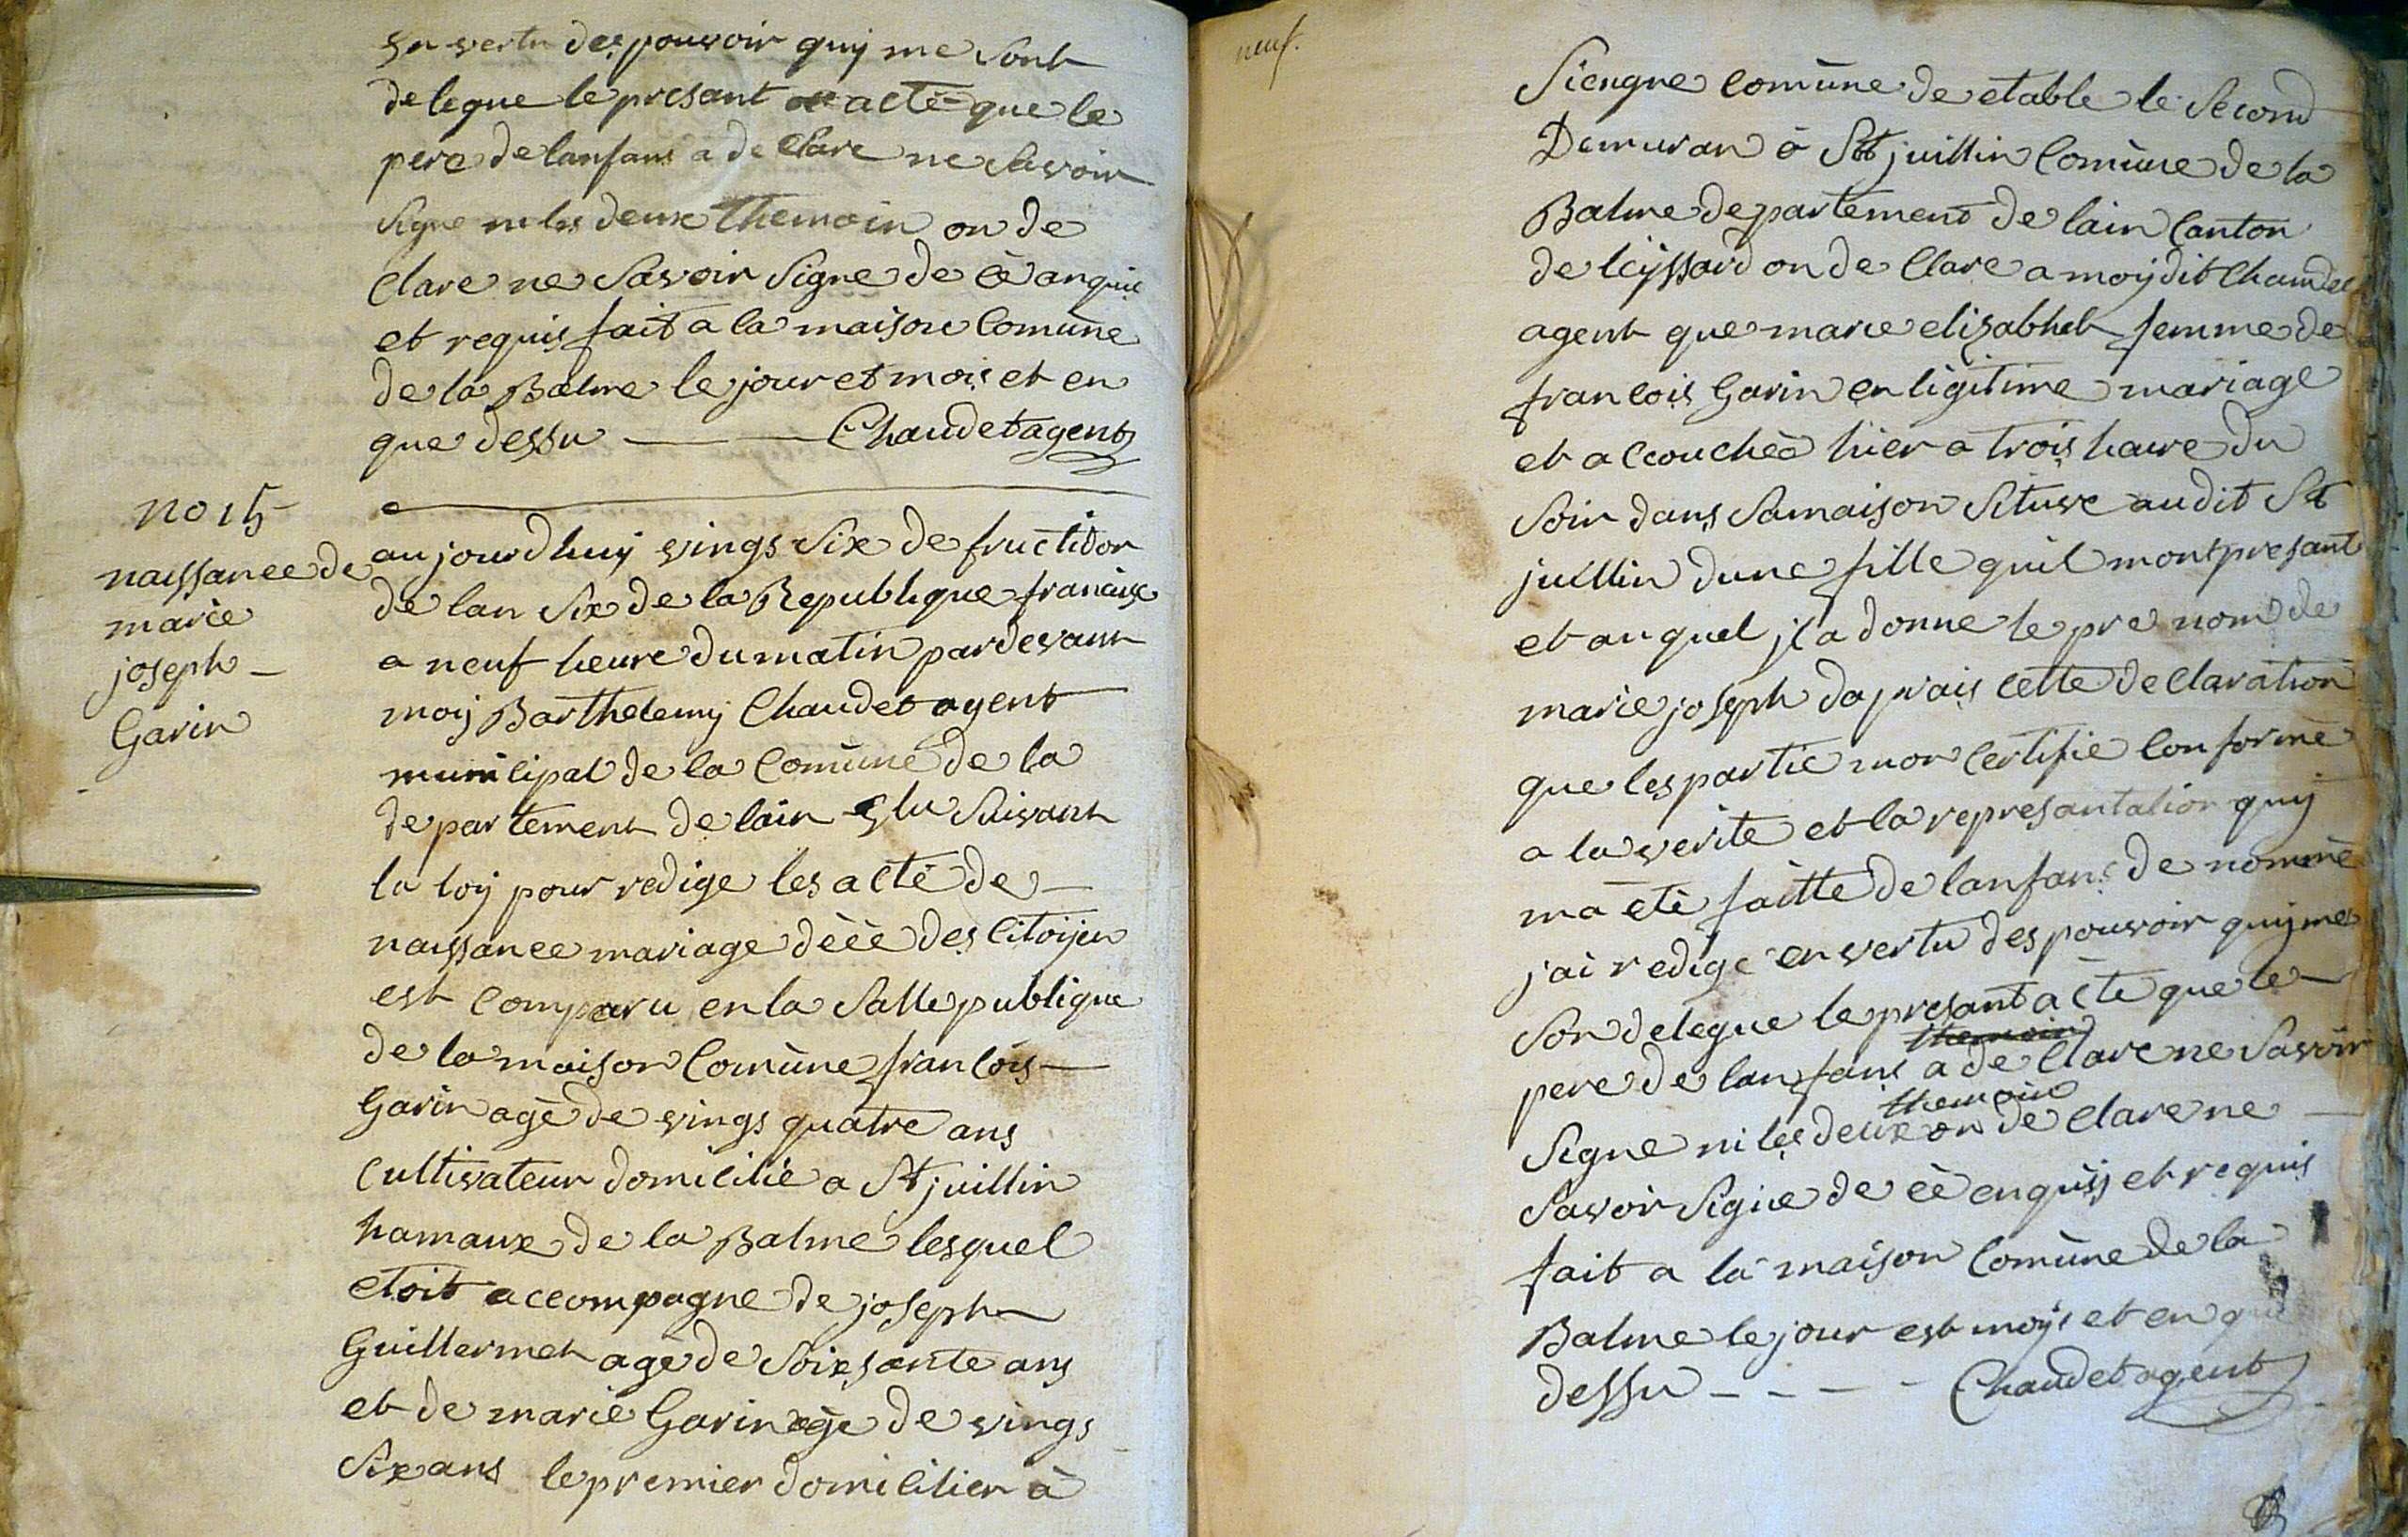 en vertu des pouvoir quij me sont
delegue le presant acté que le
pere de lanfans a de Clare ne savoir
signe ni les deux themoin on de
Clare ne savoir signe de cè anquis
et requis fait a la maison Comune
de la Balme le jour et mois et en
que dessu Chaudet agent
no 15
naissance de
marie
joseph
Gavin
aujourdhuij vings six de fructidor
de lan six de la Republique francaise
a neuf heure du matin pardevant
moij Barthelemij Chaudet agent
municipal de la Comune de la
departement de lain Elu suivant
la loij pour redige les acté de
naissance mariage dèèè des Citoijen
est Comparu en la salle publique
de la maison Comùne francois
Gavin agè de vings quatre ans
Cultivateur domicilié a St juillin
hamaux de la Balme lesquel
etoit accompagne de joseph
Guillermet agè de soixsante ans
et de marie Gavin agè de vings
six ans le premier domicilier à
neuf.
Siengne Comùne de etable le second
Demuran à St juillin Comùne de la
Balme departement de lain Canton
de leÿssard on de Clare a moÿ dit Chaudet
agent que marie elizabhet femme de
francois Gavin en ligitime mariage
et accouchèè hier a trois haure du
soir dans sa maison situve audit St
juillin dune fille quil mont presant
et auquel jl a donne le pre nom de
marie joseph daprais cette declaration
que les partie mon certifie Conforme
a la verite et la represantation quij
ma etè faitte de lanfans de nommè
j'ai redige en vertu des pouvoir quij me
son delegue le presant acte que le
themoin
pere de lanfans a de Clare ne savoir
themoin
signe ni les deux on de Clare ne
savoir signe de cè enquis et requis
fait a la maison Comùne de la
Balme le jour est moÿs et en que
dessu Chaudet agent